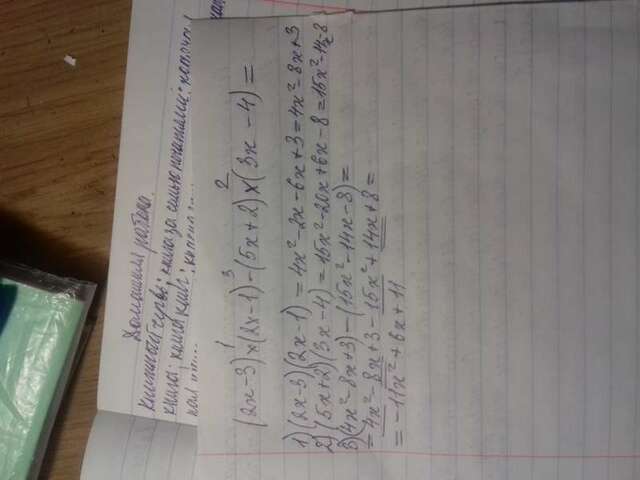 Домашняя работа.
Книжный червь; книга за семью печатями;
книга; книга книг;
1 3 2
(2x-3)×(2x-1)-(5x+2)×(3x-4)=
1) (2x-3)(2x-1) = 4x²-2x-6x+3=4x²-8x+3
2) (5x+2)(3x-4)=15x²-20x+6x-8=15x²-14x-8
3) (4x²-8x+3)-(15x²-14x-8)=
= 4x²-8x+3-15x²+14x+8=
= -11x²+6x+11